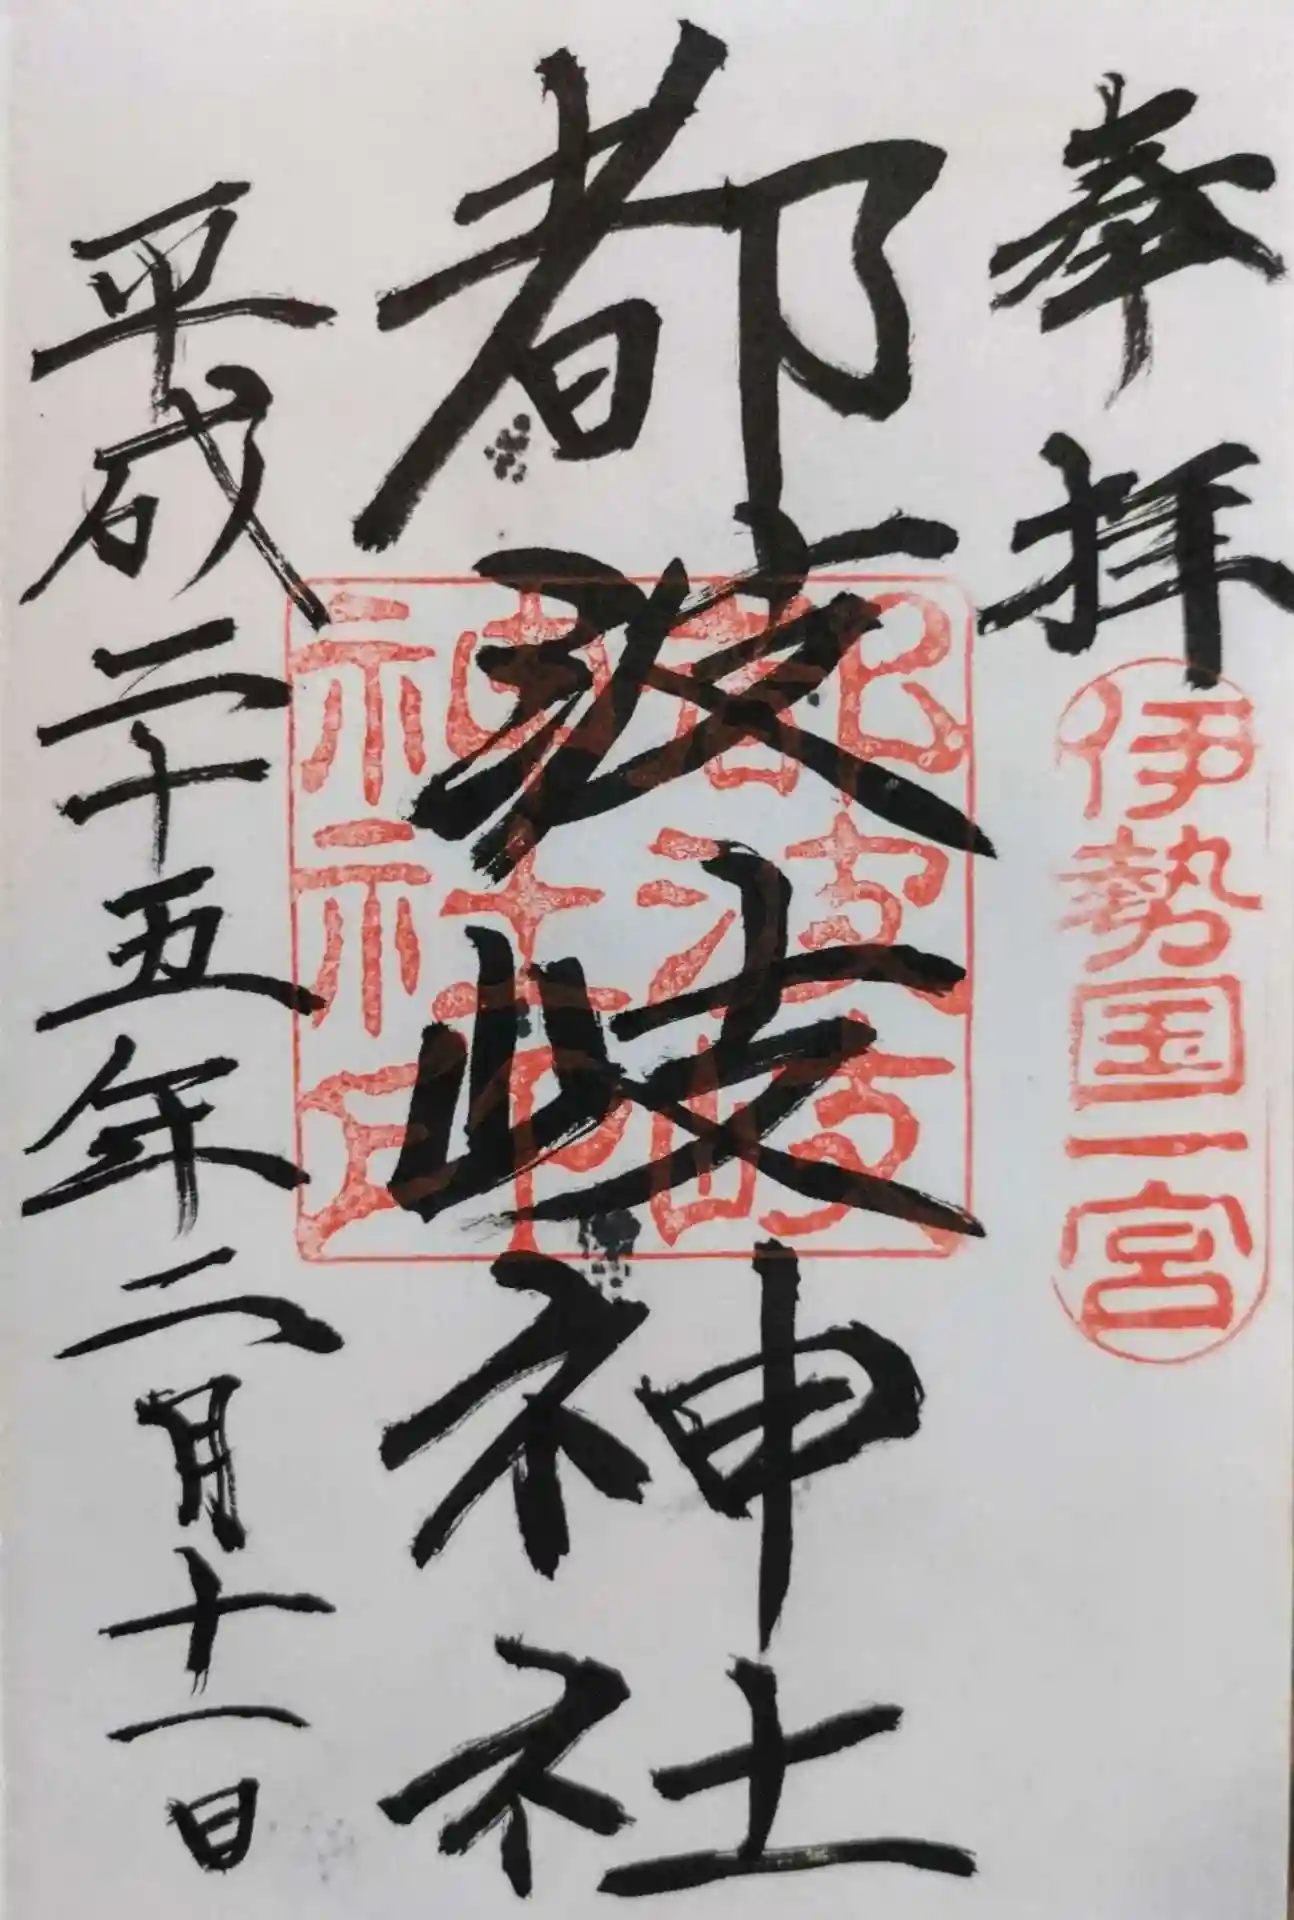 奉拝
伊勢国一宮
都波岐神社
都波岐
神社印
平成二十五年二月十一日